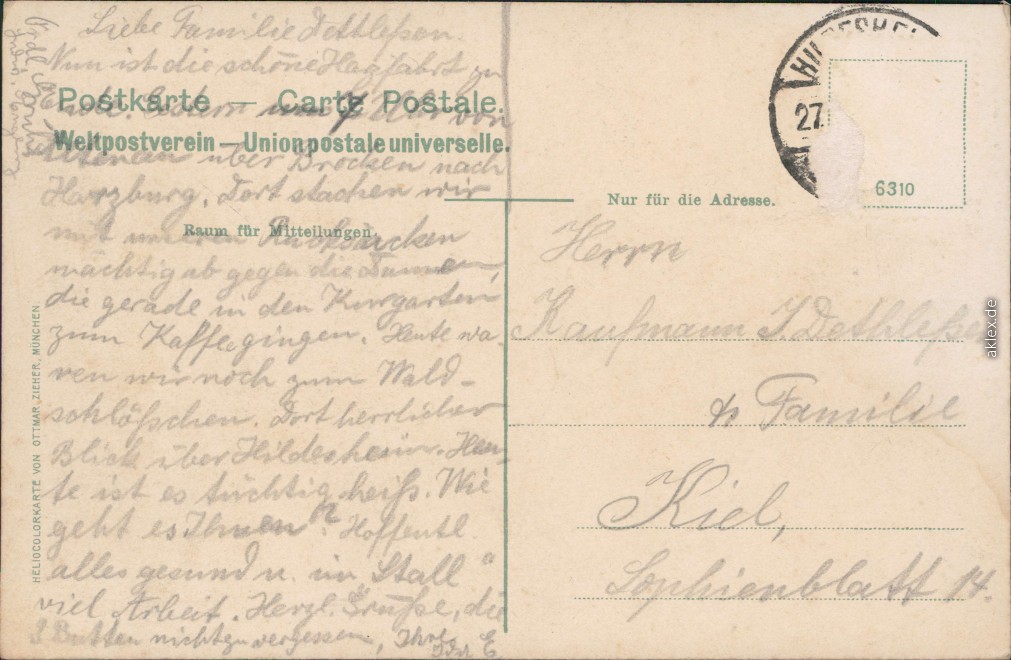 Liebe Familie Dethleßen.
Nun ist die schöne Harzfahrt zu
Postkarte — Carte Postale.
Ende. Gestern um 7 Uhr von
Weltpostverein — Union postale universelle.
über Brocken nach
Harzburg. Dort stachen wir
Raum für Mitteilungen.
mit unseren Rucksäcken
mächtig ab gegen die Damen,
die gerade in den Kurgarten
zum Kaffee gingen. Heute wa-
ren wir noch zum Wald-
schlößchen. Dort herrlicher
Blick über Hildesheim. Heu-
te ist es tüchtig heiß. Wie
geht es Ihnen? Hoffentl.
alles gesund u. im "Stall"
viel Arbeit. Herzl. Grüße, die
nicht zu vergessen, Ihre
HELIOCOLORKARTE VON OTTMAR ZIEHER, MÜNCHEN
HILDESHEI
27.
6310
Nur für die Adresse.
Herrn
Kaufmann J. Dethleßen
Familie
Kiel,
Sophienblatt 14.
aklex.de